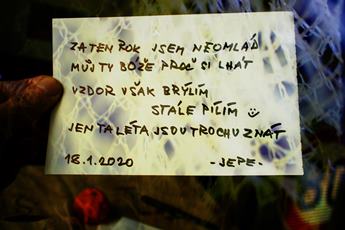 ZA TEN ROK JSEM NEOMLÁD
MŮJ TY BOŽE PROČ SI LHÁT
VZDOR VŠAK BRÝLÍM
STÁLE PÍLÍM
JEN TA LÉTA JSOU TROCHU ZNÁT
18.1.2020 -JEPE-